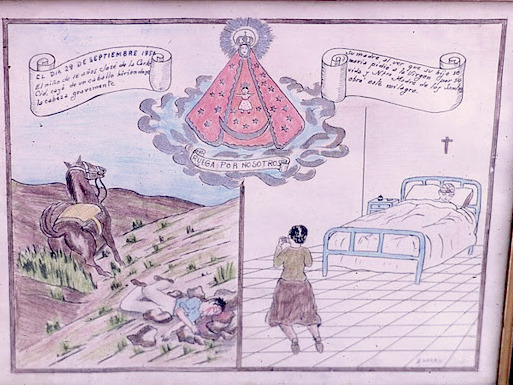 EL DIA 29 DE SEPTIEMBRE
El niño de 10 años José de la
Cruz cayó de un caballo hiriendose
la cabeza gravemente.
Su madre al ver que su hijo se
moria pidió a la Virgen por su
vida y Ntra Madre de
obró este milagro.
RUEGA POR NOSOTROS